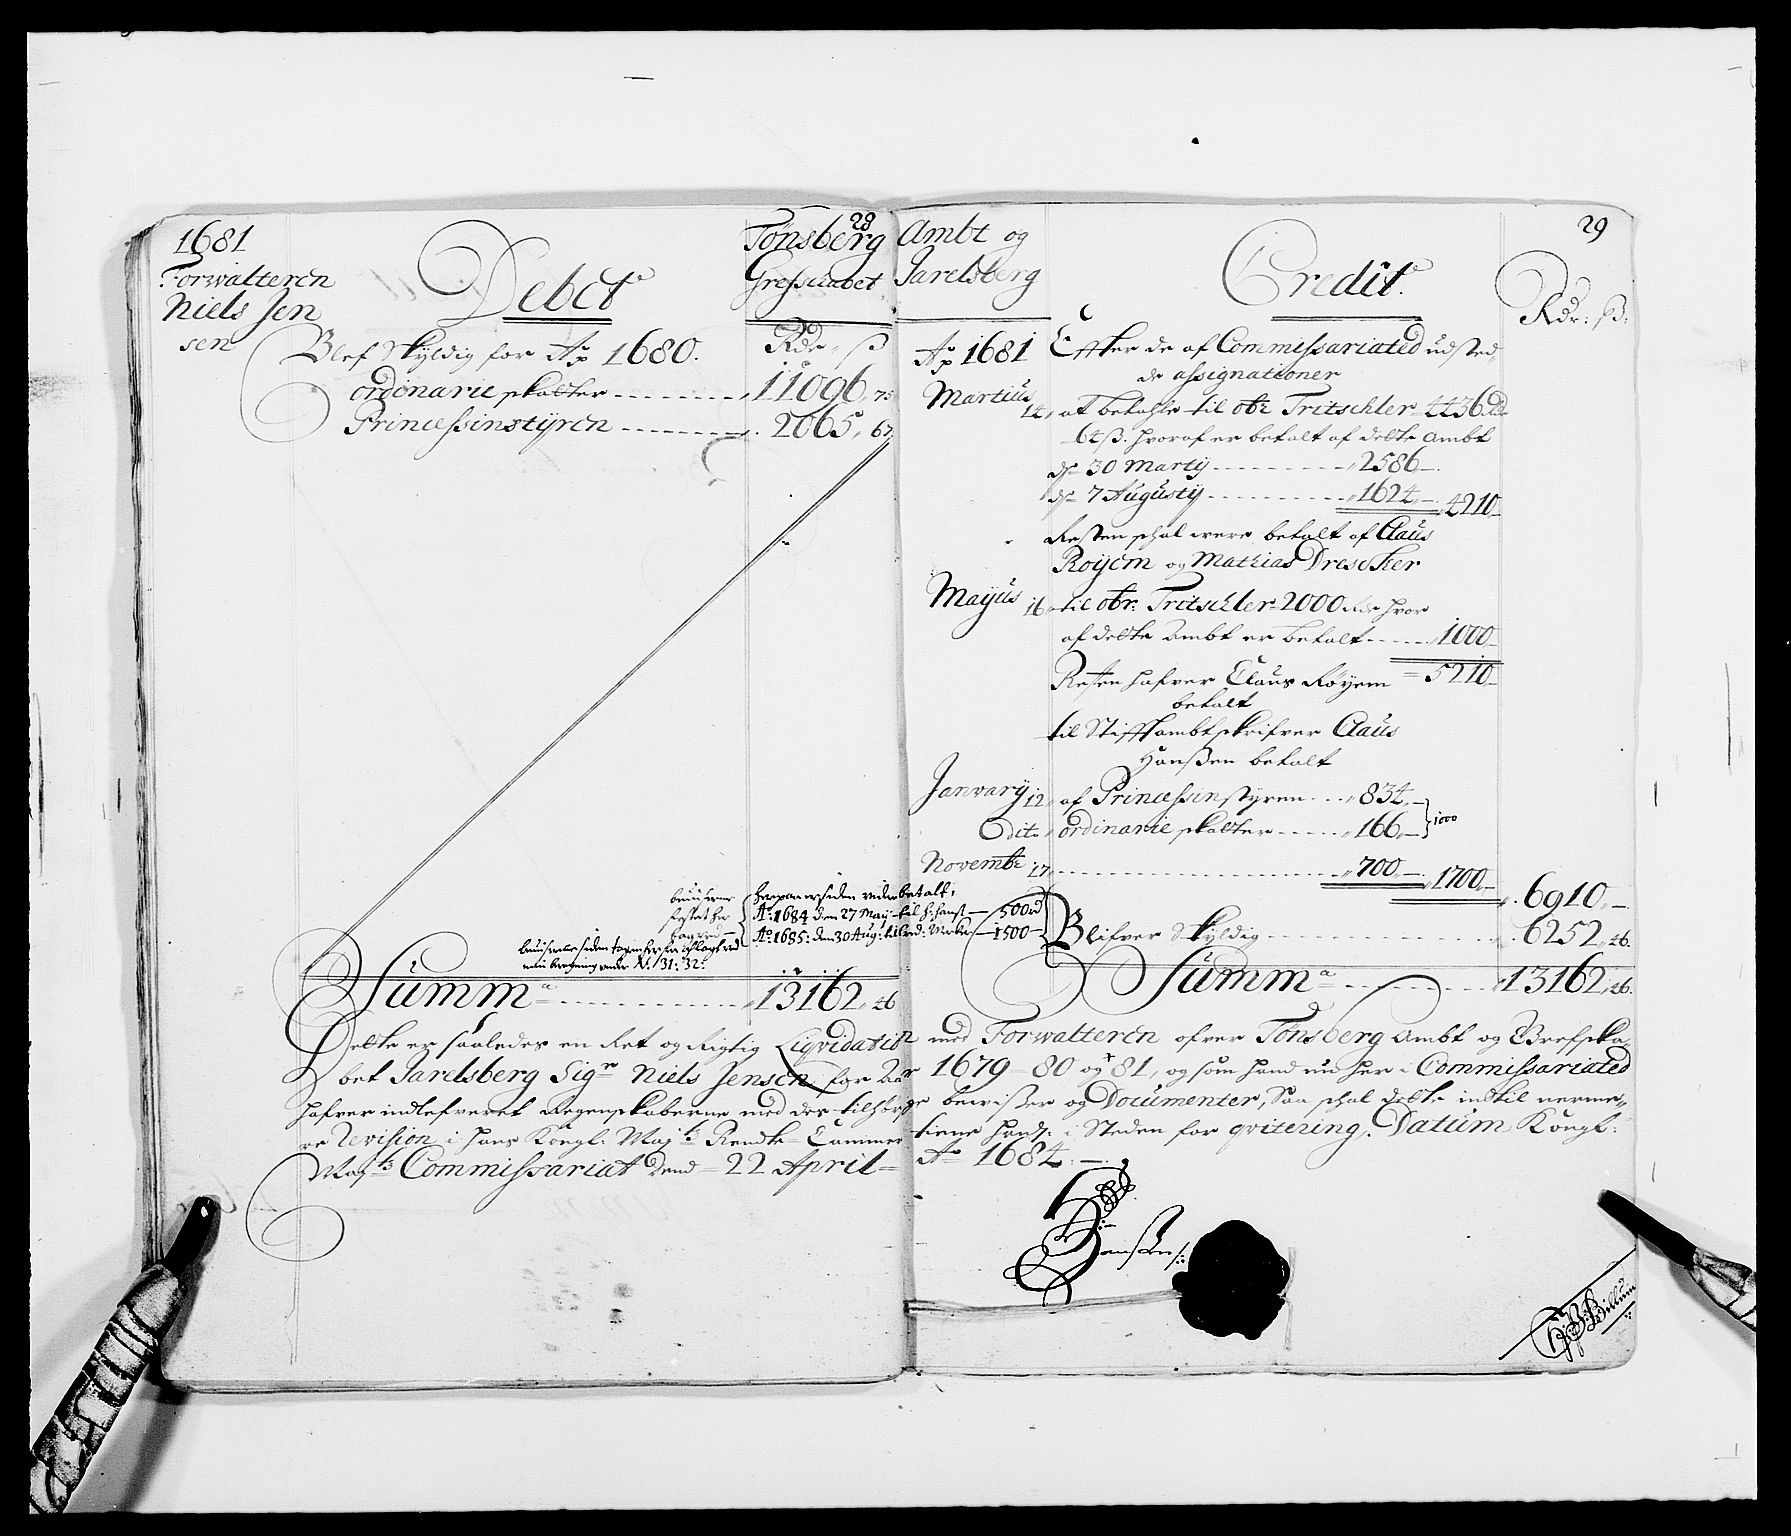 28
1681
Forwalteren
Niels Jen
sen
Debet
Tonsberg
Grefscabet
Rdr ß
Blef Skyldig for Aō 1680.
ordinarie skatter 11096, 75
Princessinstyren 2065, 67
hver paa er siden vider betalt,
Aō: 1684 den 27 May til H: Hans 500 rd
Aō: 1685: den 30 Aug: til 1500
Summa 13162, 46
29
Ambt og
Jarelsberg
Credit
Rdr: ß:
Aō 1681 Effter de af Commissariated udsted,
de assignationer
Martius 14, at betahle til obr Tritschler 4436 rdr
64 ß. hvoraf er betalt af dette Ambt
dn 30 Marty 2586
dn 7 Augusty 1624, 4210
Resten schal were betalt af Claus
Royem og Mathias Drescher
Mayus 16, til obr: Tritschler 2000 Rdr hvor
af dette Ambt er betalt 1000
5210
Resten hafver Claus Røyem
betalt
til Stifftambtskrifver Claus
Hanßen betalt
January 12, af Princessinstyren 834,
Dito, ordinarie skatter 166, 1000
Novembr 17, 700, 1700,
6910,
Blifver Skyldig 6252, 46.
Summa 13162, 46.
Dette er saaledes en Ret og Rigtig Liqvidation med Forwalteren ofver Tonsberg Ambt og Grefska,
bet Jarelsberg Sigr Niels Jensen for Aar 1679 80 og 81, og som hand nu her i Commissariated
hafver indlefveret Regenskaberne med der tilhørige bewißer og Documenter, Saa schal dette indtil nerme,,
re Revision i Hans Kongl: Mayts Rendte Cammer tiene ham: i Steden for qvitering. Datum Kongl:
Mayts Commissariat Dend 22 April Aō 1684.
Hanßen
Billum